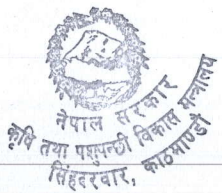 नेपाल सरकार
कृषि तथा पशुपन्छी विकास मन्त्रालय
सिंहदरवार, काठमाण्डौ